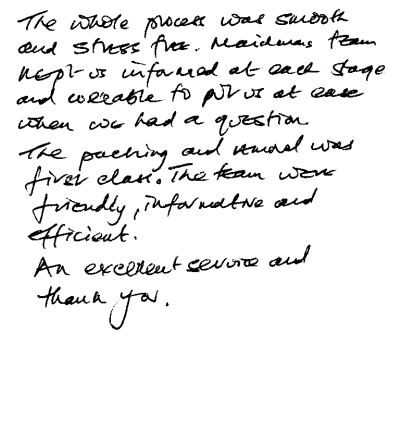 The whole process was smooth
and stress free. Maidmans team
kept us informed at each stage
and were able to put us at ease
when we had a question
The packing and removal was
first class. The team were
friendly, informative and
efficient.
An excellent service and
thank you.